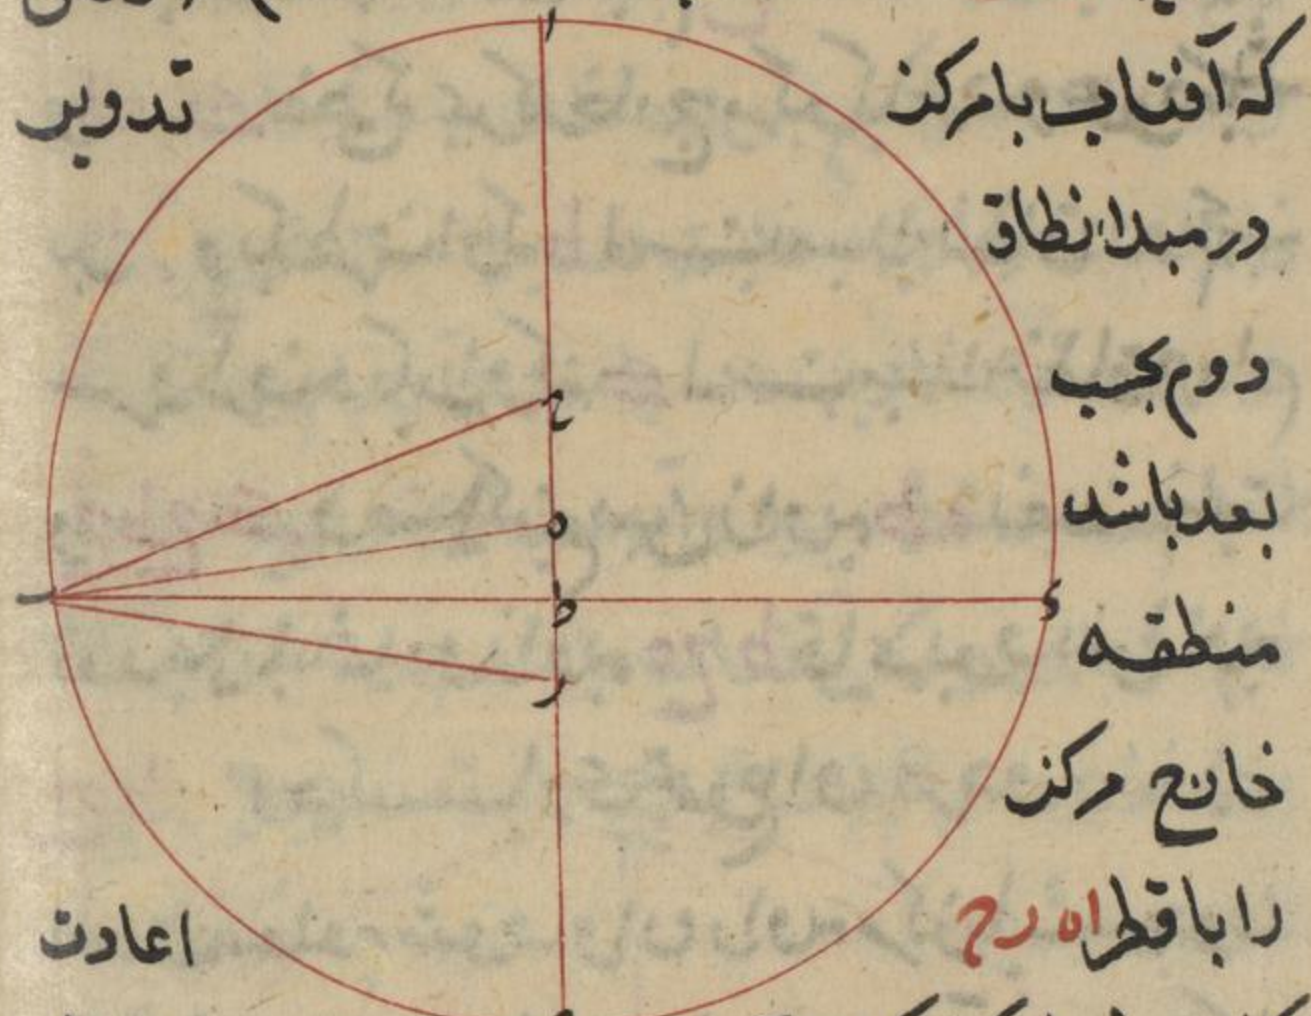 که آفتاب با مرکز تدویر
در مبدا نطاق
دوم بحسب
بعد باشد
منطقه
خارج مرکز
را با قطر اه ر ح اعادت
ا
ح
ه
ط
ر
ب
ء